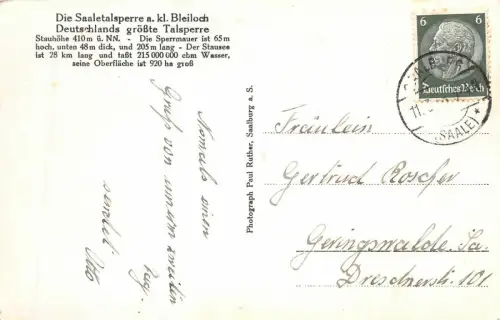 Die Saaletalsperre a. kl. Bleiloch
Deutschlands größte Talsperre
Stauhöhe 410 m ü. NN. - Die Sperrmauer ist 65 m
hoch, unten 48 m dick, und 205 m lang - Der Stausee
ist 28 km lang und faßt 215 000 000 cbm Wasser,
seine Oberfläche ist 920 ha groß
6 6
Deutsches Reich
SAALBURG
11.
(SAALE) *
Nomals einen
Gruß von unserm zweiten
Tag.
sendet
Otto
Photograph Paul Ruther, Saalburg a. S.
Fräulein
Gertrud Roscher
Geringswalde. Sa.
Dresdnerstr. 101